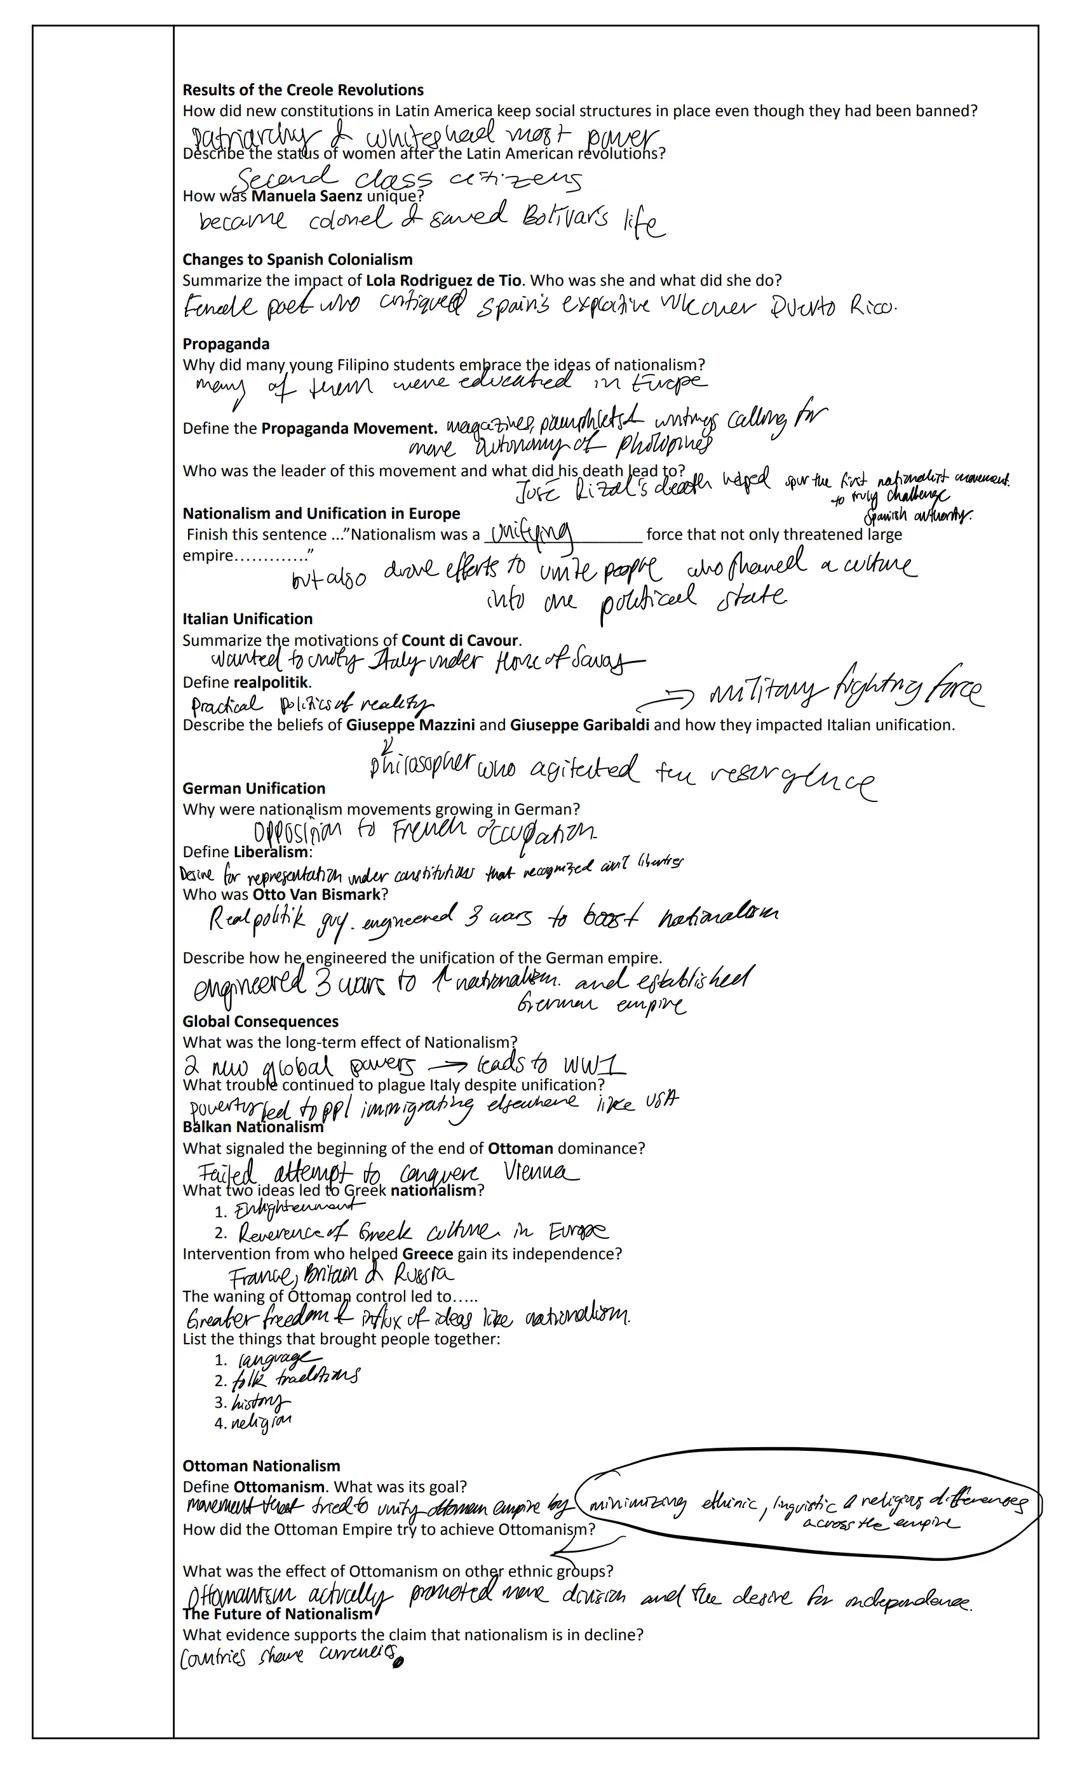 Results of the Creole Revolutions
How did new constitutions in Latin America keep social structures in place even though they had been banned?
patriarchy & whites head most power
Describe the status of women after the Latin American revolutions?
Second class citizens
How was Manuela Saenz unique?
became colonel & saved Bolivar's life
Changes to Spanish Colonialism
Summarize the impact of Lola Rodriguez de Tio. Who was she and what did she do?
Female poet who critiqued Spain's exploitive rule over Puerto Rico.
Propaganda
Why did many young Filipino students embrace the ideas of nationalism?
many of them were educated in Europe
Define the Propaganda Movement. magazines, pamphlets & writings calling for
more autonomy of Philippines
Who was the leader of this movement and what did his death lead to?
José Rizal's death helped spur the first nationalist movement
to truly challenge
Spanish authority.
Nationalism and Unification in Europe
Finish this sentence ..."Nationalism was a unifying force that not only threatened large
empire............."
but also drove efforts to unite people who shared a culture
into one political state
Italian Unification
Summarize the motivations of Count di Cavour.
wanted to unify Italy under House of Savoy
Define realpolitik.
Practical politics of reality
→ military fighting force
Describe the beliefs of Giuseppe Mazzini and Giuseppe Garibaldi and how they impacted Italian unification.
philosopher who agitated for resurgence
German Unification
Why were nationalism movements growing in German?
Opposition to French occupation
Define Liberalism:
Desire for representation under constitutions that recognized civil liberties
Who was Otto Van Bismark?
Realpolitik guy. engineered 3 wars to boost nationalism
Describe how he engineered the unification of the German empire.
engineered 3 wars to ↑ nationalism. and established
German empire
Global Consequences
What was the long-term effect of Nationalism?
2 new global powers → leads to WW1
What trouble continued to plague Italy despite unification?
poverty led to ppl immigrating elsewhere like USA
Balkan Nationalism
What signaled the beginning of the end of Ottoman dominance?
Failed attempt to conquere Vienna
What two ideas led to Greek nationalism?
1. Enlightenment
2. Reverence of Greek culture in Europe
Intervention from who helped Greece gain its independence?
France, Britain & Russia
The waning of Ottoman control led to.....
Greater freedom & influx of ideas like nationalism.
List the things that brought people together:
1. language
2. folk traditions
3. history
4. religion
Ottoman Nationalism
Define Ottomanism. What was its goal?
movement that tried to unify ottoman empire by minimizing ethinic, linguistic & religious differences
across the empire
How did the Ottoman Empire try to achieve Ottomanism?
What was the effect of Ottomanism on other ethnic groups?
Ottomanism actually promoted more division and the desire for independence.
The Future of Nationalism
What evidence supports the claim that nationalism is in decline?
Countries share currencies.